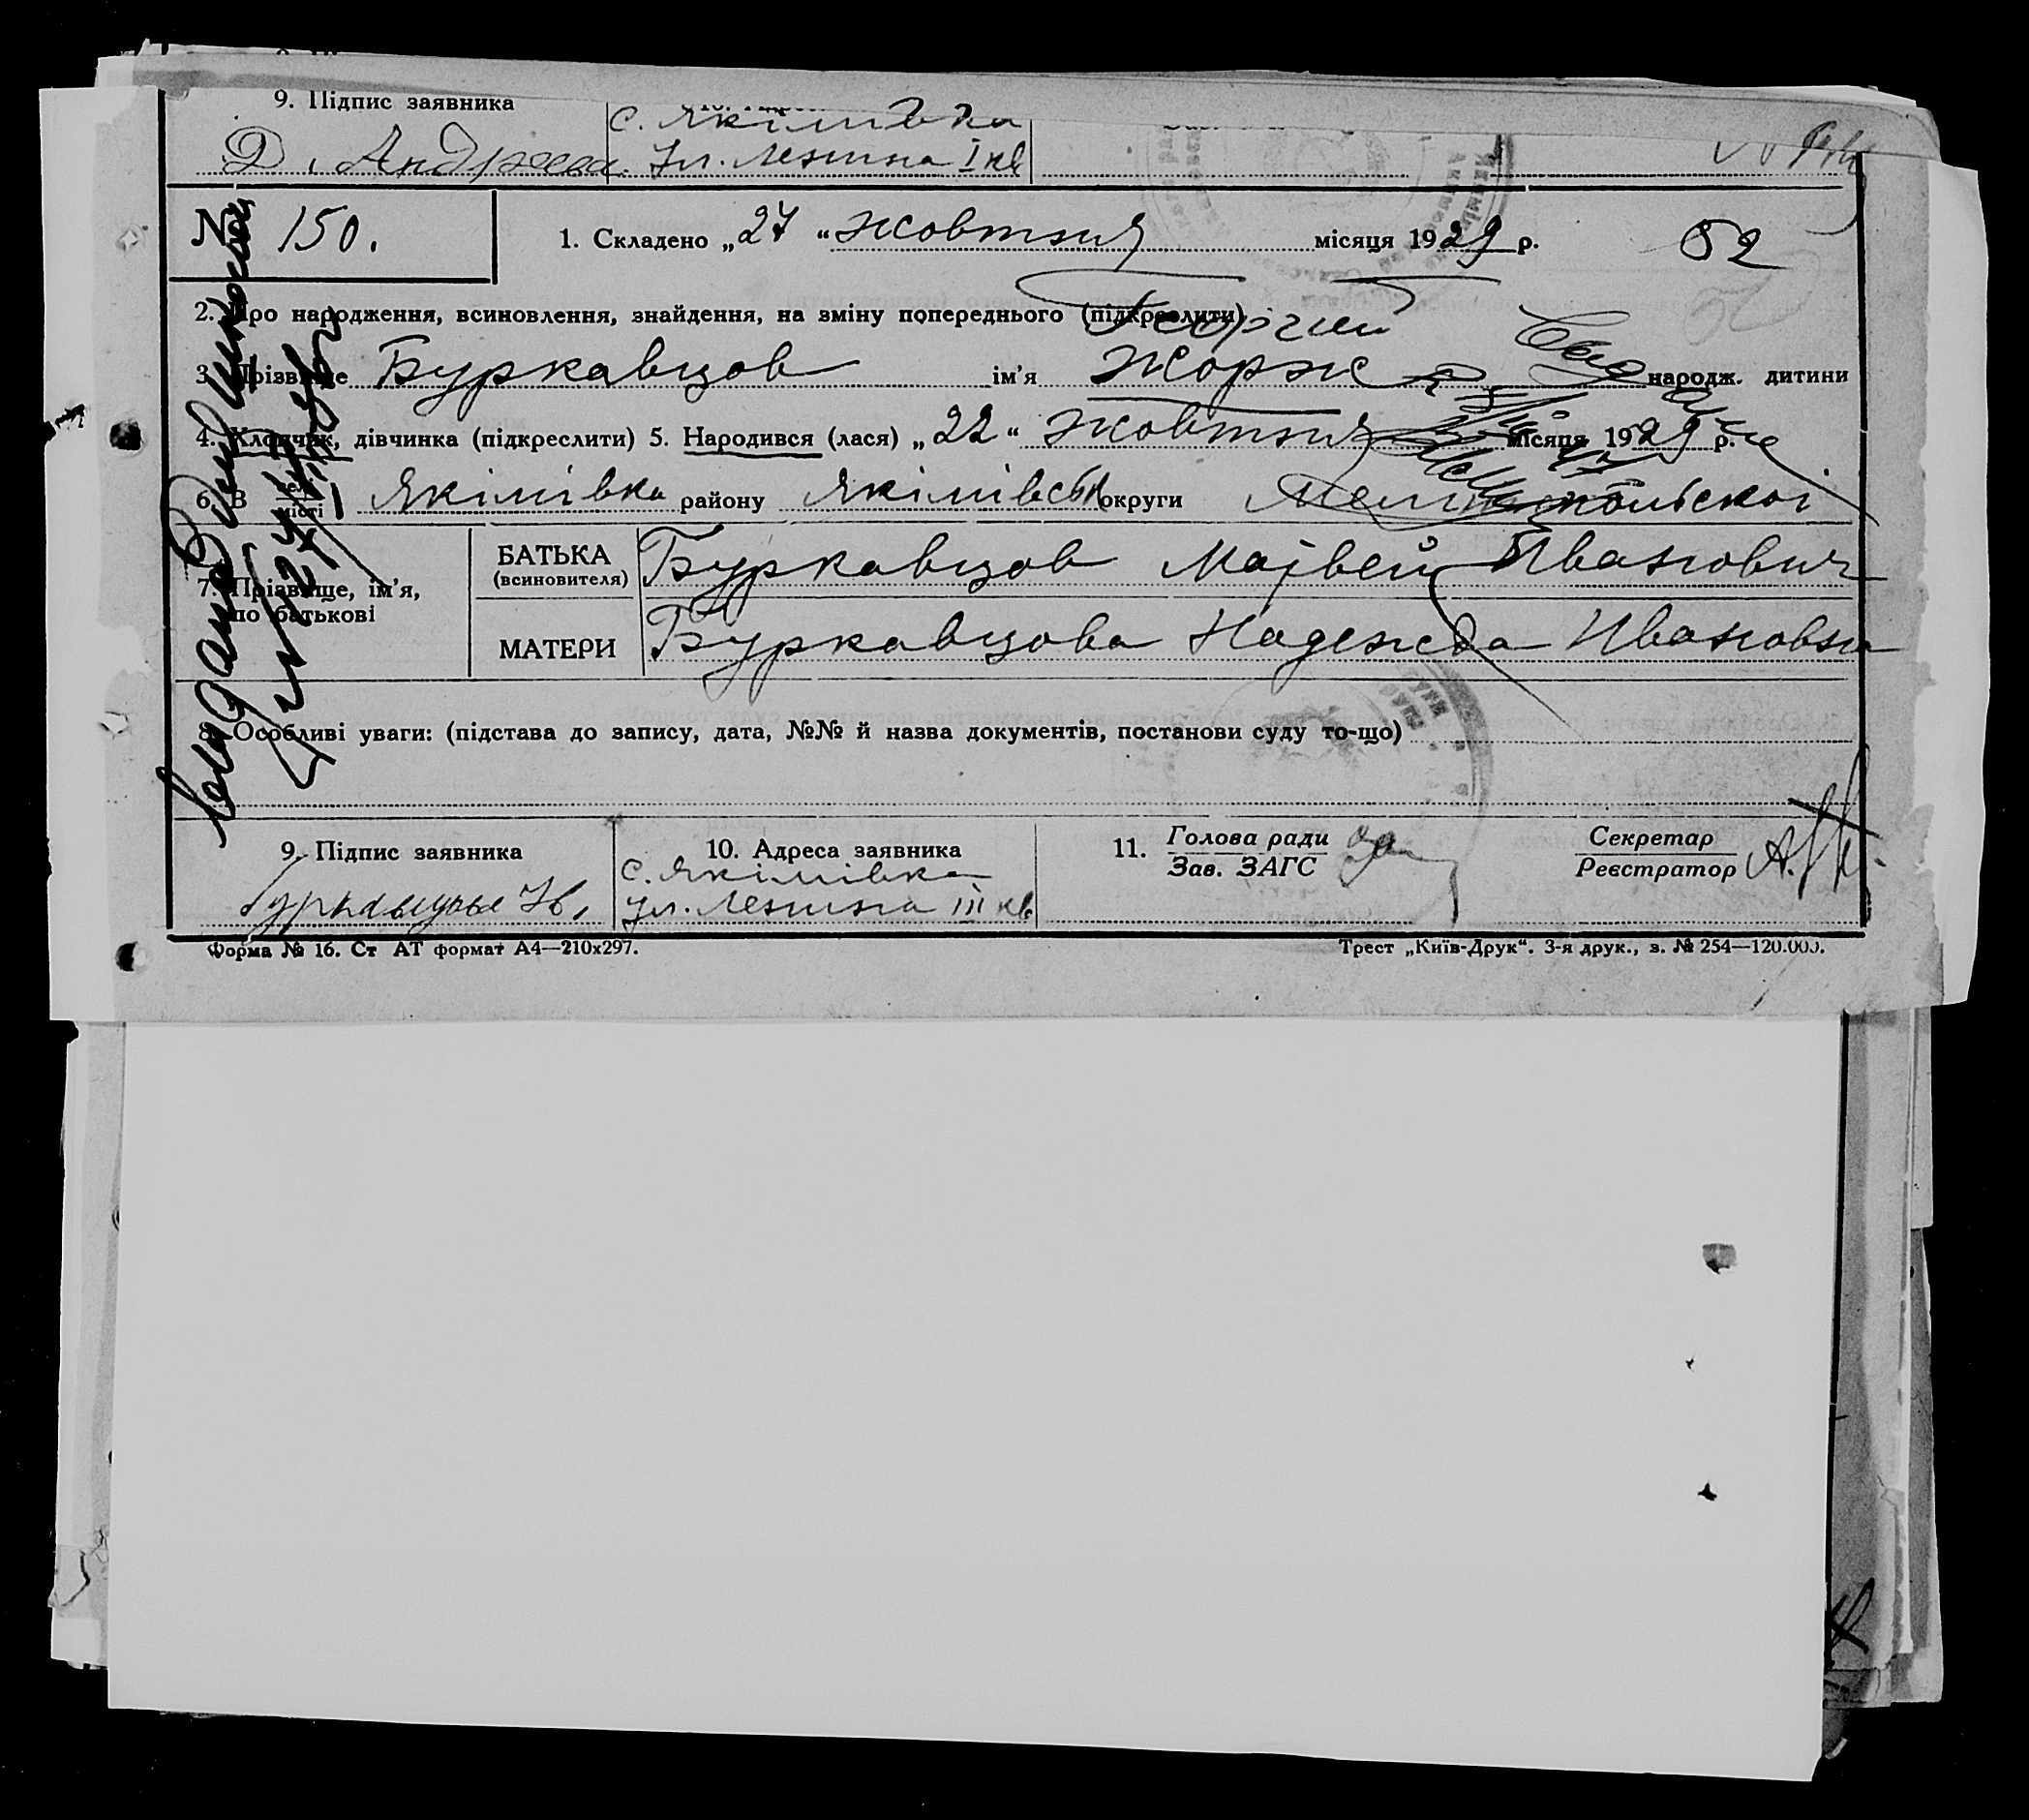 9. Підпис заявника
с. Якімівка
Д. Андреев ул. Леніна I кв
№ 150. 1. Складено „27“ жовтня місяця 1929 р. 52
2. Про народження, всиновлення, знайдення, на зміну попереднього (підкреслити)
Георгий
3. Прізвище Буркавцов ім'я Жорж народж. дитини
4. Хлопчик, дівчинка (підкреслити) 5. Народився (лася) „22“ жовтня місяця 1929 р.
6. В селі місті Якімівка району Якімівськ округи Мелітопольскоі
7. Прізвище, ім'я, по батькові
БАТЬКА (всиновителя) Буркавцов Матвей Иванович
МАТЕРИ Буркавцова Надежда Ивановна
8. Особливі уваги: (підстава до запису, дата, №№ й назва документів, постанови суду то-що)
9. Підпис заявника 10. Адреса заявника 11. Голова ради Секретар
с. Якімівка Зав. ЗАГС Реєстратор
ул. Леніна III кв.
Форма № 16. Ст АТ формат А4—210х297. Трест „Київ-Друк“. 3-я друк., з. № 254—120.000.